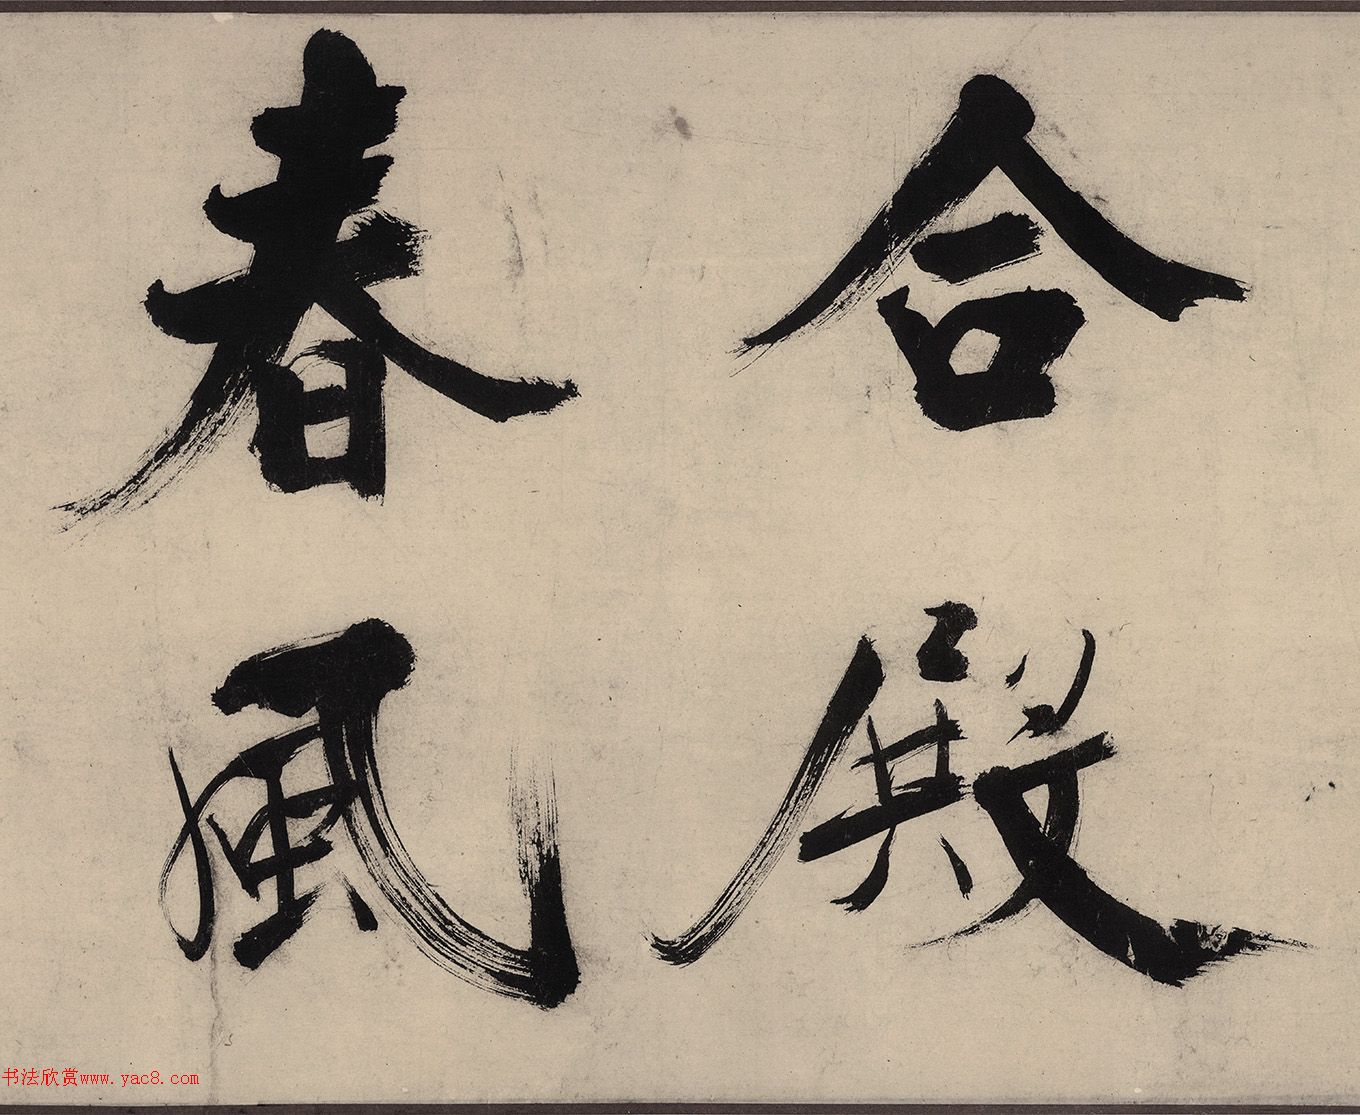 合殿
春風
书法欣赏www.yac8.com